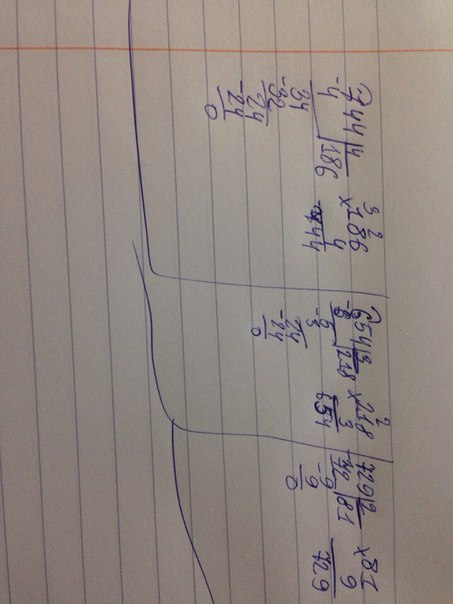 744|4
-4 |186
34
-32
24
-24
0
3 2
×186
4
744
654|3
-6 |218
-5
3
24
-24
0
2
×218
3
654
729|9
-72|81
-9
9
0
×81
9
729